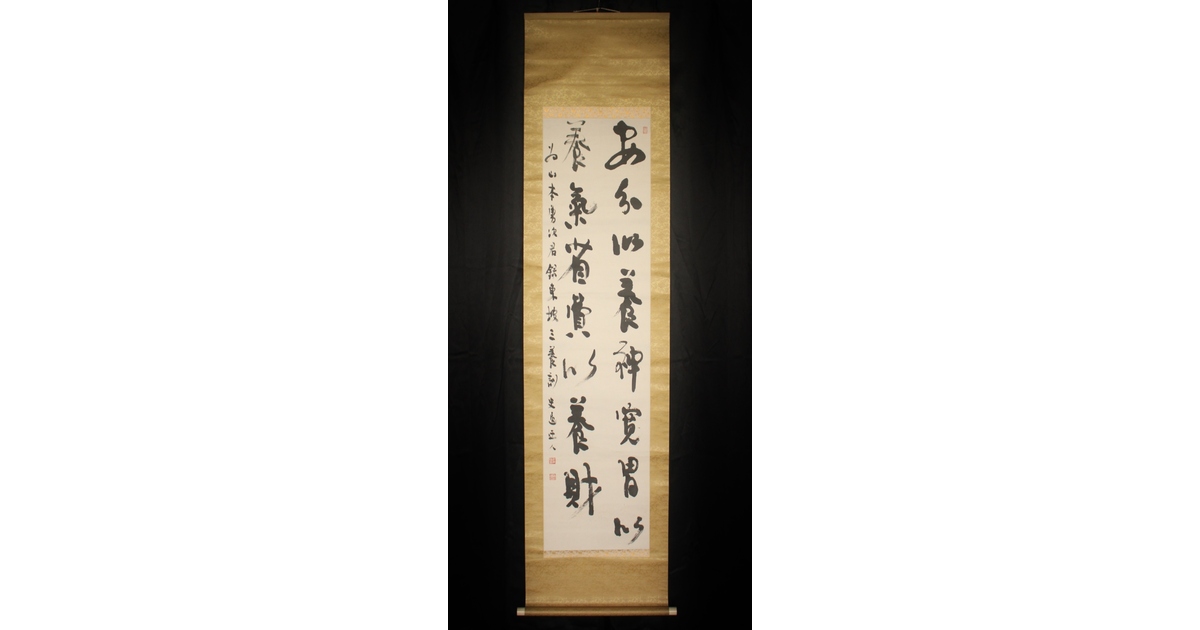 安分以養神寛胃以
養氣省費以養財
為山本次君録東坡三養訓史邑人